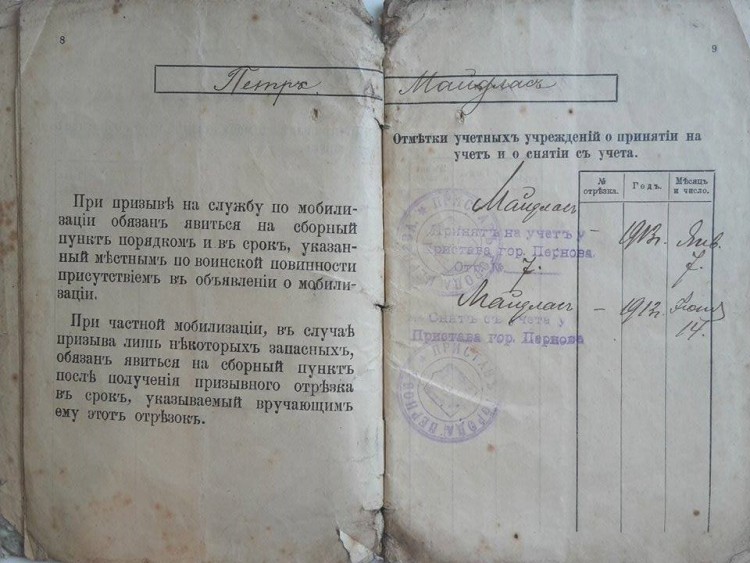 8
Петръ
При призывѣ на службу по мобили-
заціи обязанъ явиться на сборный
пунктъ порядкомъ и въ срокъ, указан-
ный мѣстнымъ по воинской повинности
присутствіемъ въ объявленіи о мобили-
заціи.
При частной мобилизаціи, въ случаѣ
призыва лишь нѣкоторыхъ запасныхъ,
обязанъ явиться на сборный пунктъ
послѣ полученія призывного отрѣзка
въ срокъ, указываемый вручающимъ
ему этотъ отрѣзокъ.
9
Майдласъ
Отмѣтки учетныхъ учрежденій о принятіи на
учетъ и о снятіи съ учета.
№ отрѣзка.
Годъ.
Мѣсяцъ и число.
Майдласъ
Принятъ на учетъ у
Пристава гор. Пернова
Отд. № 7.
– 1913г. Янв. 7.
Майдласъ
Снятъ съ учета у
Пристава гор. Пернова
– 1913г. 14.
ПРИСТАВ ГОРОДА ПЕРНОВА